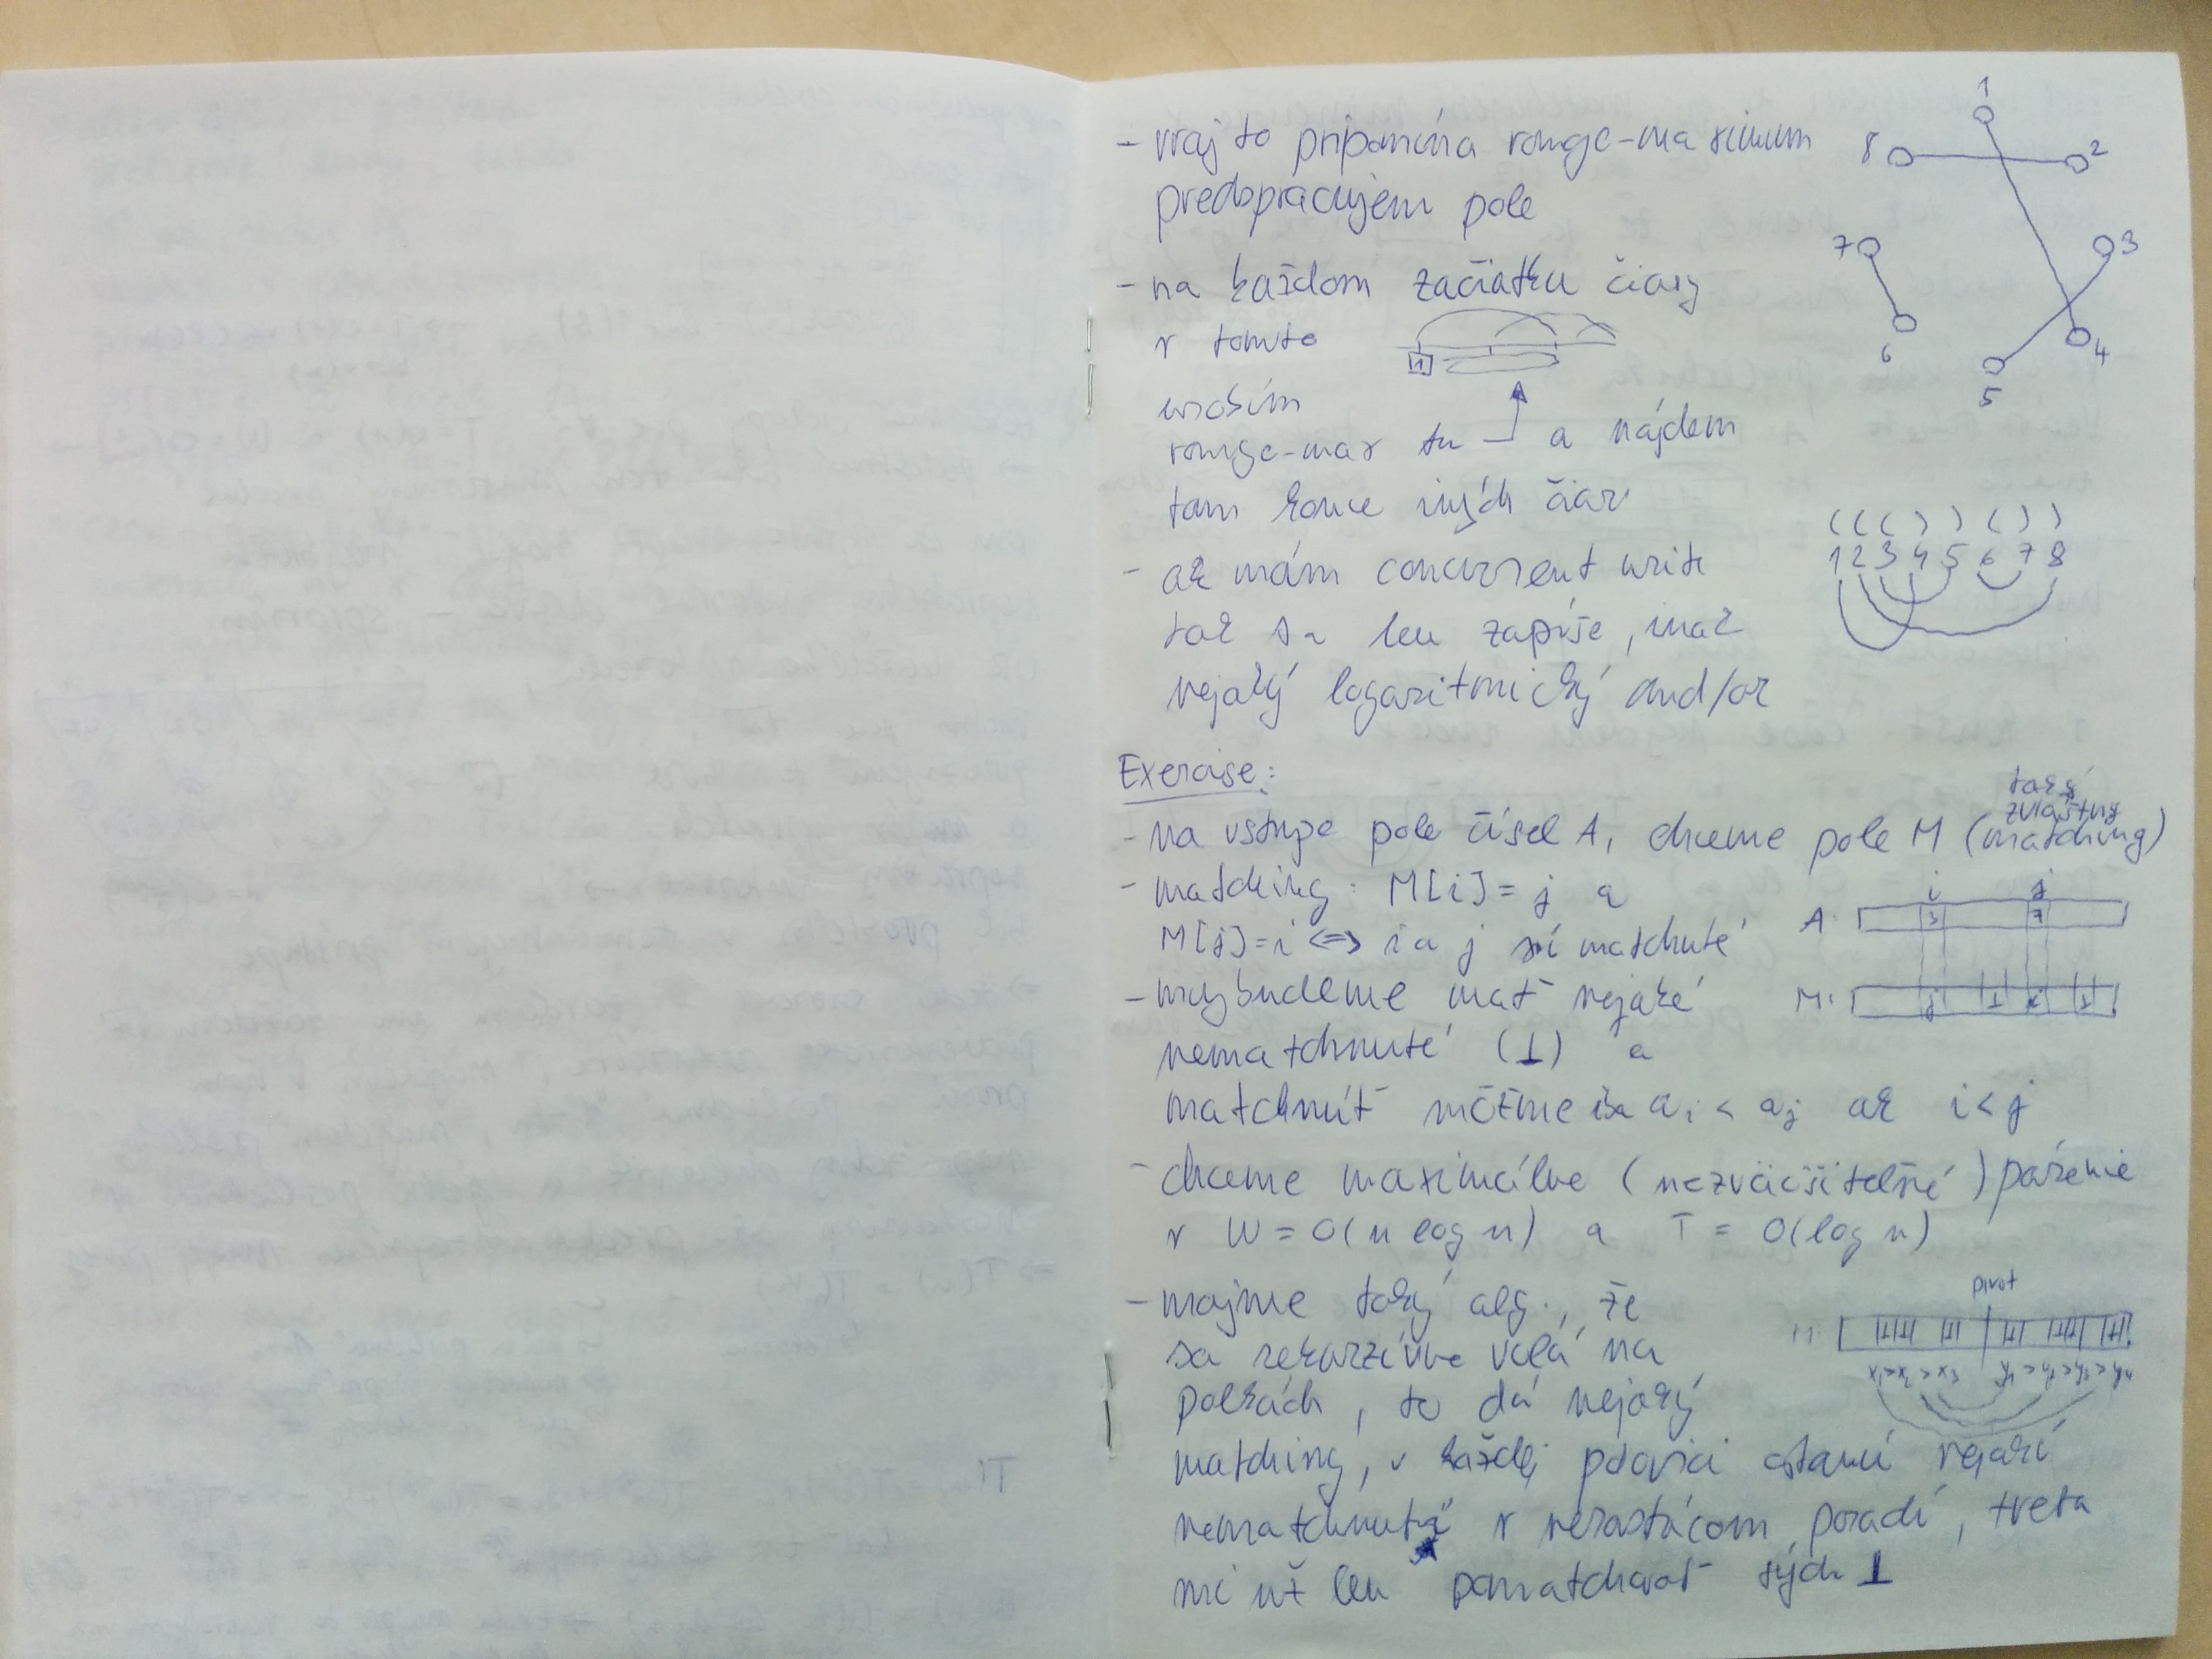 - vraj to pripomína range-maximum
predopracujem pole
- na každom začiatku čiary
v tomto
urobím
range-max tu a nájdem
tam konce iných čiar
- ak mám concurrent write
tak sa len zapíše, inak
nejaký logaritmický and/or
1
8 2
7 3
6 4
5
( ( ( ) ) ( ) )
1 2 3 4 5 6 7 8
Exercise:
taký
zvláštny
- na vstupe pole čísel A, chceme pole M (matching)
- matching: M[i] = j a
M[j]=i <=> i a j sú matchnuté
- my budeme mať nejaké
nematchnuté (⊥) a
matchnúť môžme iba a_i < a_j ak i < j
i j
A: 3 7
M: j ⊥ i ⊥
- chceme maximálne (nezväčšiteľné) párenie
v W = O(n log n) a T = O(log n)
- majme taký alg., že
sa rekurzívne volá na
polkách, to dá nejaký
matching, v každej polovici ostanú nejakí
nematchnutí v nerastúcom poradí, treba
mi už len pomatchovať tých ⊥
pivot
M:
x1 > x2 > x3 y1 > y2 > y3 > y4